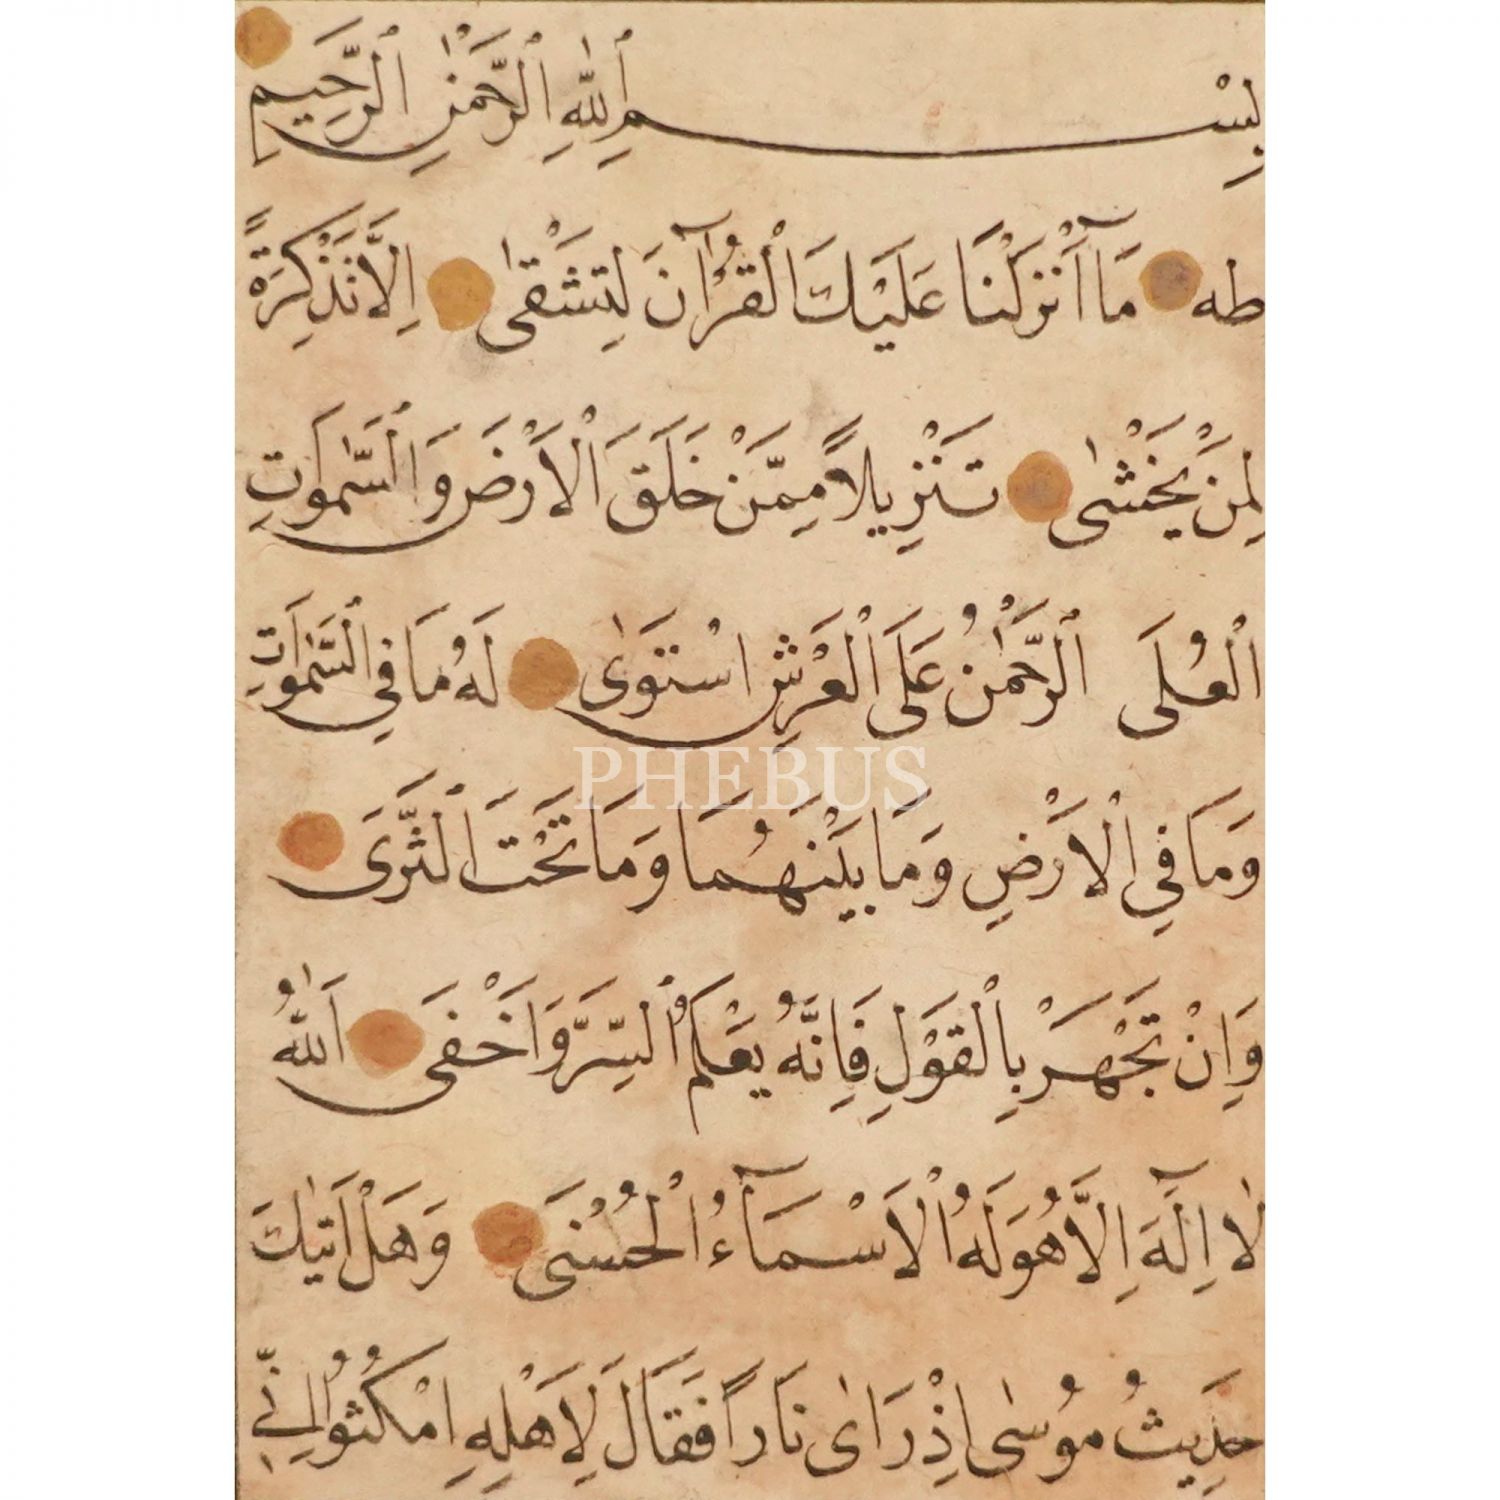 بِسْمِ ٱللّٰهِ ٱلرَّحْمٰنِ ٱلرَّحِيمِ
طه مَآ أَنْزَلْنَا عَلَيْكَ الْقُرْآنَ لِتَشْقٰى اِلَّا تَذْكِرَةً
لِمَنْ يَخْشٰى تَنْزِيلًا مِمَّنْ خَلَقَ الْاَرْضَ وَالسَّمٰوَاتِ
الْعُلَى الرَّحْمٰنُ عَلَى الْعَرْشِ اسْتَوٰى لَهُ مَا فِي السَّمٰوَاتِ
PHEBUS
وَمَا فِي الْاَرْضِ وَمَا بَيْنَهُمَا وَمَا تَحْتَ الثَّرَى
وَاِنْ تَجْهَرْ بِالْقَوْلِ فَاِنَّهُ يَعْلَمُ السِّرَّ وَاَخْفَى اَللّٰهُ
لَا اِلَهَ اِلَّا هُوَ لَهُ الْاَسْمَآءُ الْحُسْنَى وَهَلْ اَتٰيكَ
حَدِيثُ مُوسٰى اِذْ رَاٰى نَارًا فَقَالَ لِاَهْلِهِ امْكُثُوا اِنِّي